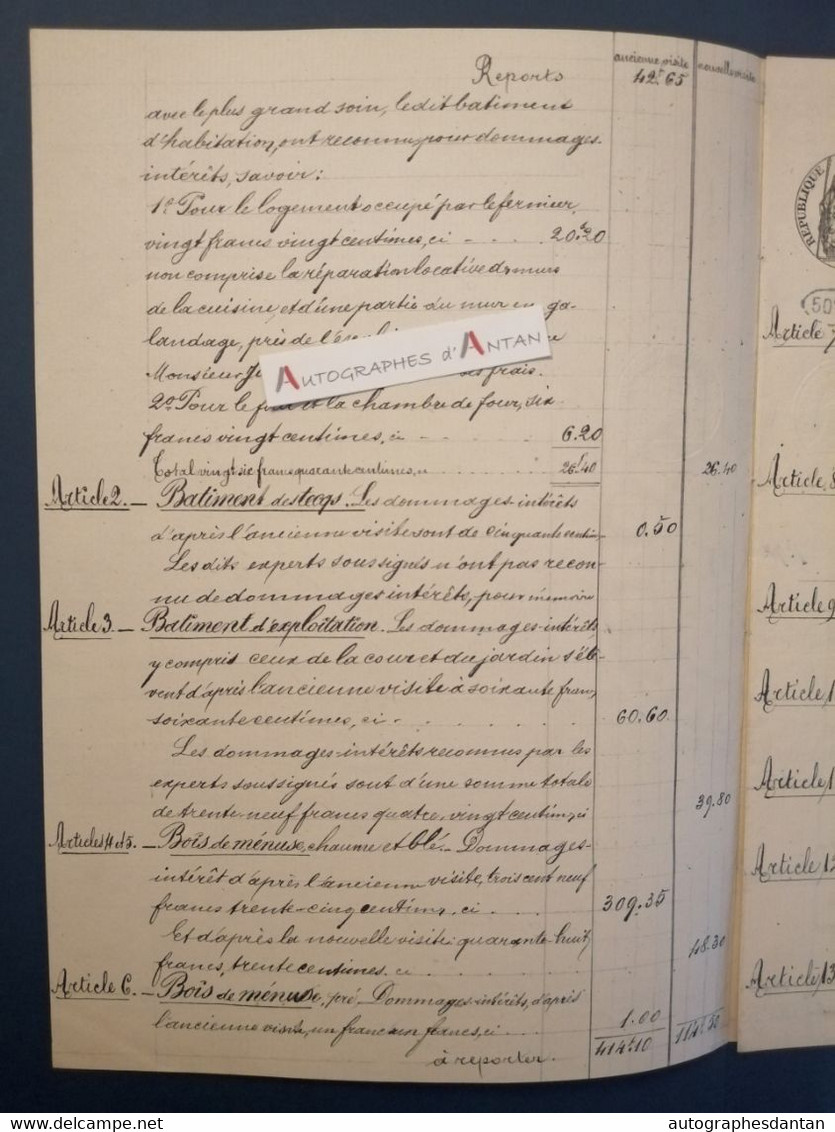 ancienne visite nouvelle visite
Reports 42f 65
avec le plus grand soin, ledit batiment
d'habitation, ont reconnu, pour dommages-
intérêts, savoir:
1º Pour le logement occupé par le fermier,
vingt francs vingt centimes, ci - . . . 20f20
non comprise la réparation locative des murs
de la cuisine, et d'une partie du mur en ga-
landage, près de l'
Monsieur frais.
2º Pour le four et la chambre de four, six
francs vingt centimes, ci 6.20
Total vingt six francs quarante centimes, ci 26f40 26.40
Article 2. — Batiment des toits. Les dommages-intérêts
d'après l'ancienne visite sont de cinquante centim- 0.50
Les dits experts soussignés n'ont pas recon-
nu de dommages intérêts, pour mémoire
Article 3. — Batiment d'exploitation. Les dommages-intérêts
y compris ceux de la cour et du jardin s'élè-
vent d'après l'ancienne visite à soixante francs,
soixante centimes, ci - 60.60
Les dommages-intérêts reconnus par les
experts soussignés sont d'une somme totale
de trente-neuf francs quatre-vingt centim, ci 39.80
Articles 4 et 5. — Bois de ménuse, chaume et blé. — Dommages-
intérêt d'après l'ancienne visite, trois cent neuf
francs trente-cinq centimes, ci 309.35
Et d'après la nouvelle visite: quarante-huit
francs, trente centimes, ci 48.30
Article 6. — Bois de ménuse, pré — Dommages-intérêts, d'après
l'ancienne visite, un franc, ci 1.00
à reporter. 414f10 114f50
AUTOGRAPHES d'ANTAN
RÉPUBLIQUE
50
Article 7
Article 8
Article 9
Article 1
Article 1
Article 12
Article 13
delcampe.net
autographesdantan